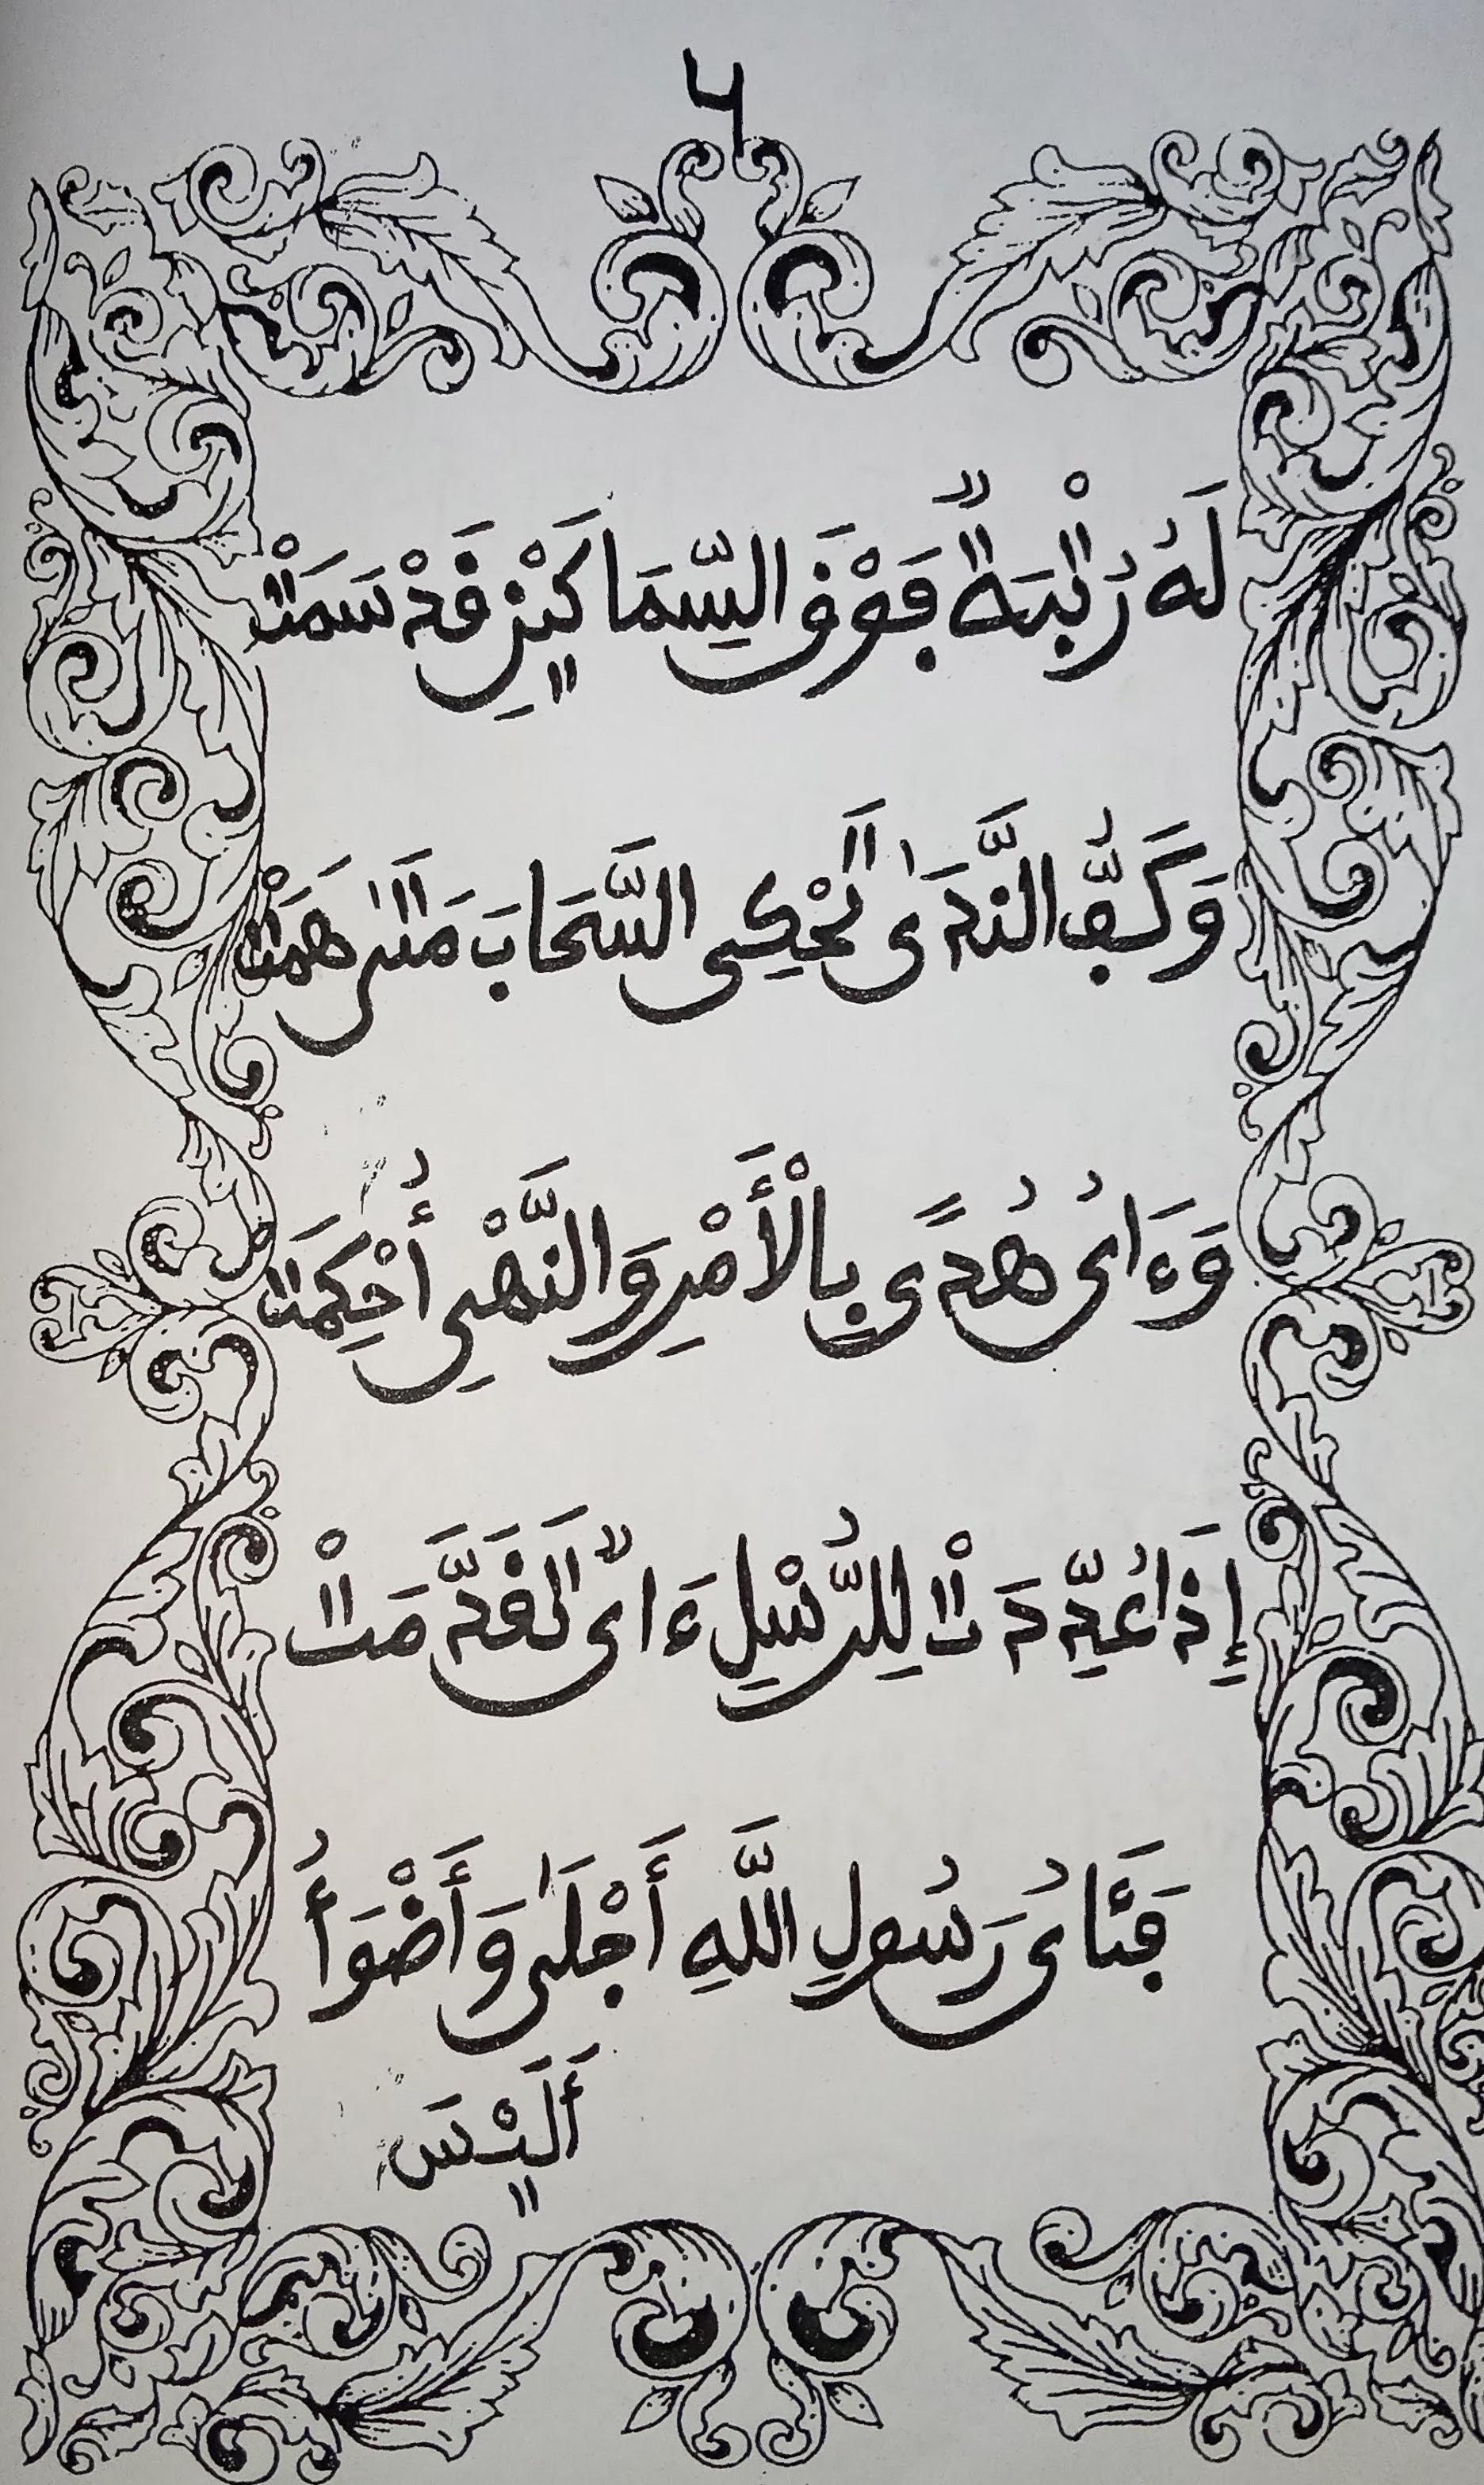 لَهُ رُتْبَةٌ فَوْقَ السِّمَاكَيْنِ قَدْ سَمَتْ
وَكَفُّ النَّدَىٰ تَحْكِي السَّحَابَ مَتَىٰ هَمَتْ
وَءَايُ هُدًى بِالْأَمْرِ وَالنَّهْيِ أُحْكِمَتْ
إِذَا عُدِّدَتْ لِلرُّسْلِ ءَايٌ تَقَدَّمَتْ
فَئَايُ رَسُولِ اللَّهِ أَجْلَىٰ وَأَضْوَأُ
أَلَيْسَ